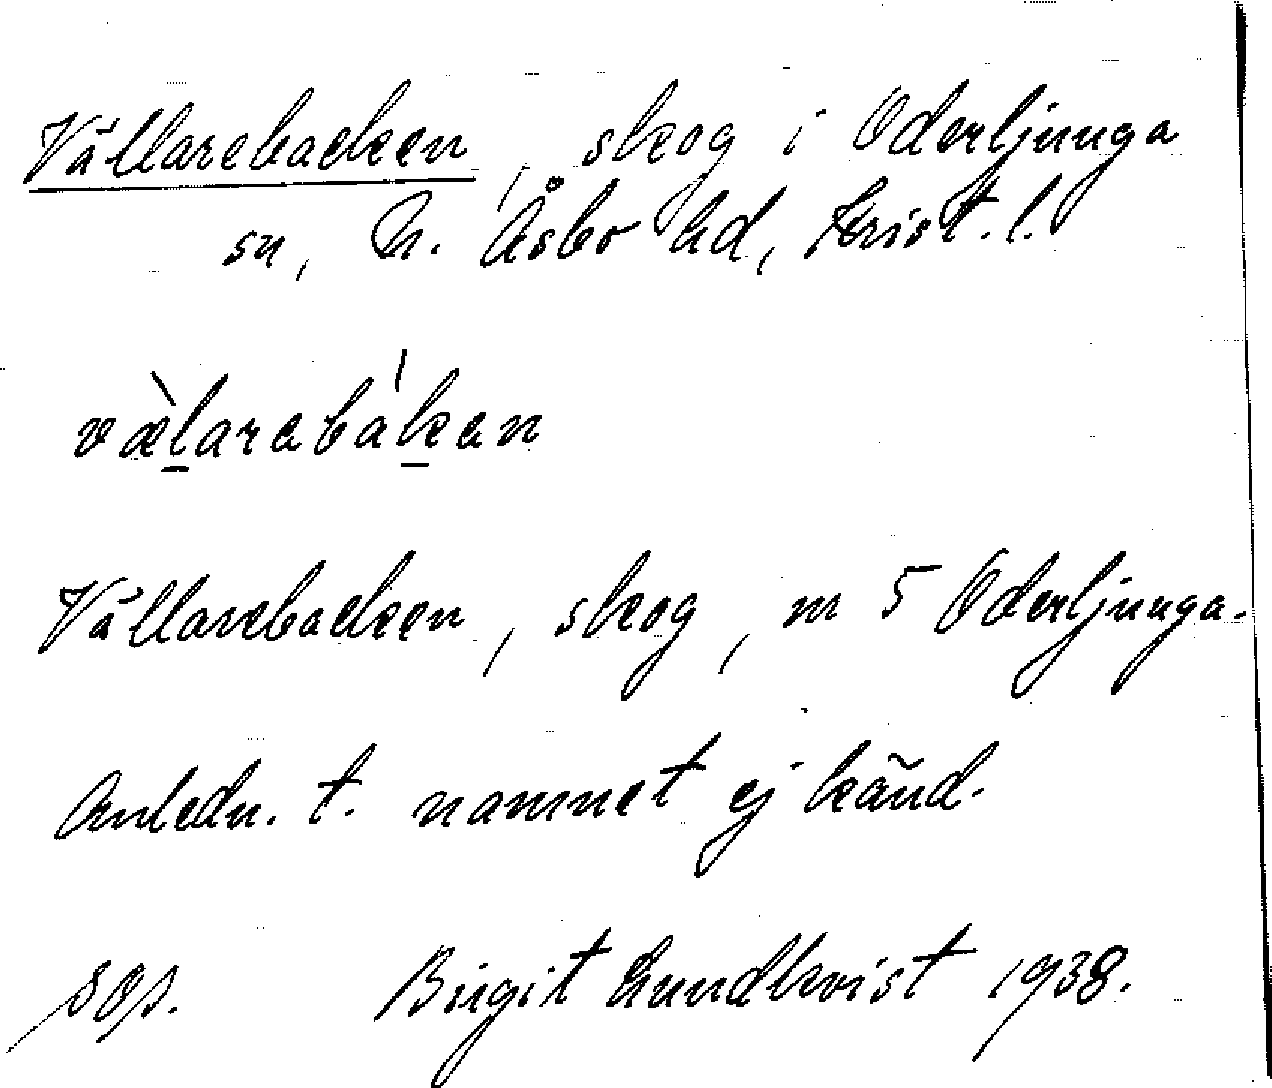 Vällarebacken, skog i Oderljunga
sn, N. Åsbo hd, Krist. l.
væ̀l̲arebák̲en
Vällarebacken, skog, m 5 Oderljunga.
Anledn. t. namnet ej känd.
Birgit Lundkvist 1938.